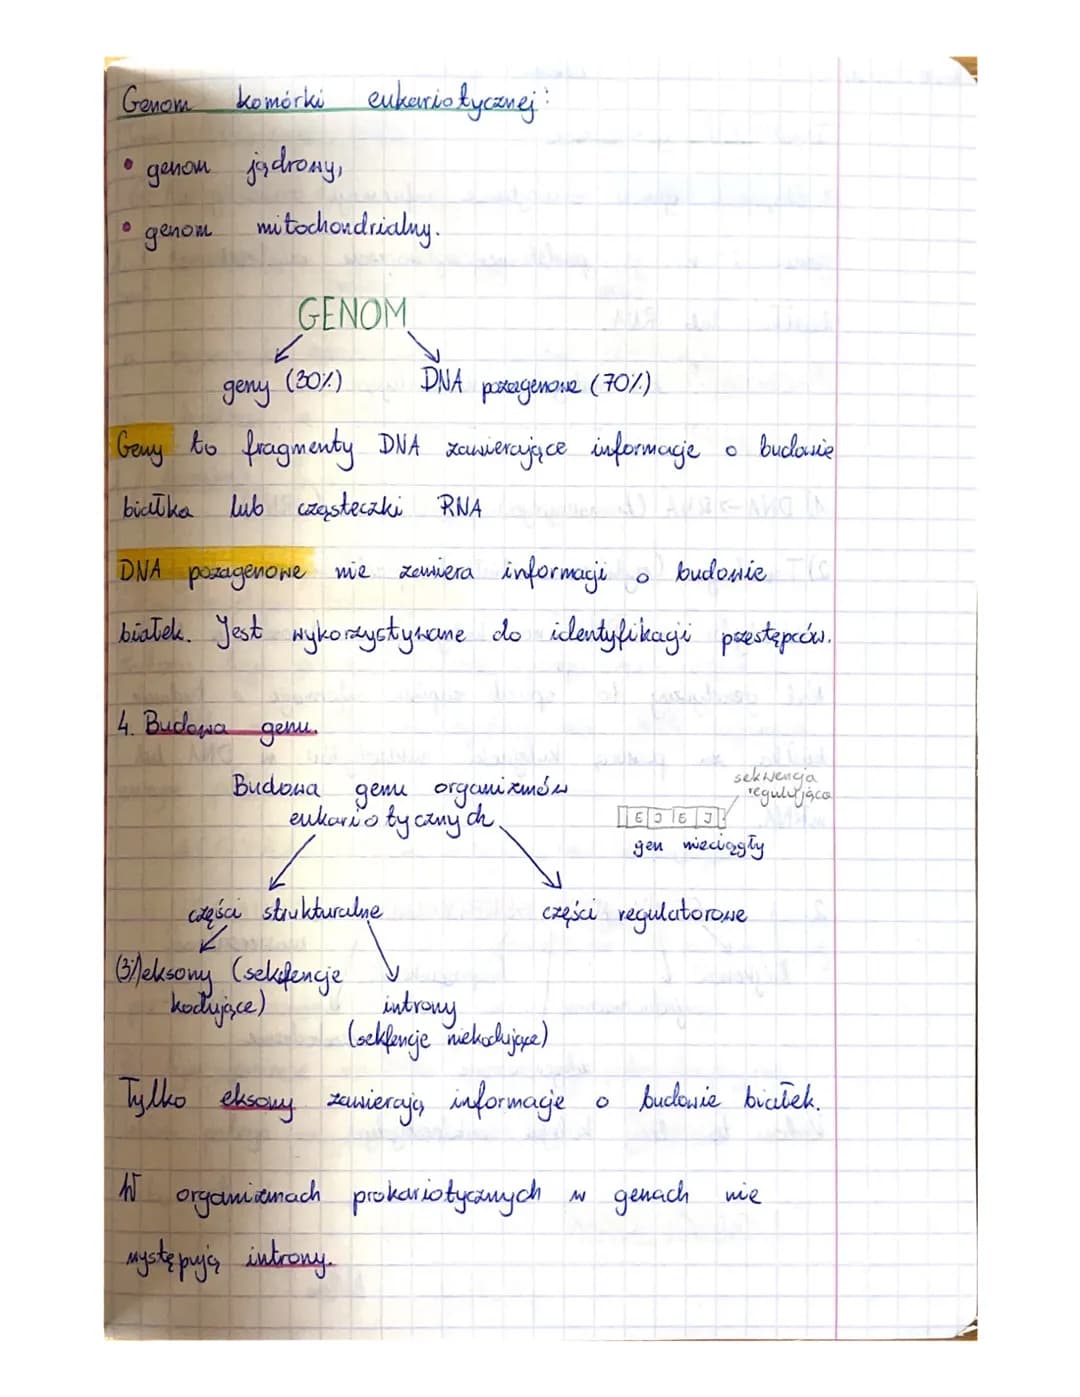 Genom komórki eukariotycznej:
• genom jądrowy,
• genom mitochondrialny.
GENOM
geny (30%) DNA pozagenowe (70%)
Geny to fragmenty DNA zawierające informacje o budowie
białka lub cząsteczki RNA
DNA pozagenowe nie zawiera informacji o budowie
białek. Jest wykorzystywane do identyfikacji przestępców.
4. Budowa genu.
Budowa genu organizmów
eukariotycznych
sekwencja
regulująca
E I E I
gen nieciągły
części strukturalne części regulatorowe
(3%) eksony (sekwencje
kodujące)
introny
(sekwencje niekodujące)
Tylko eksony zawierają informacje o budowie białek.
W organizmach prokariotycznych w genach nie
występują introny.